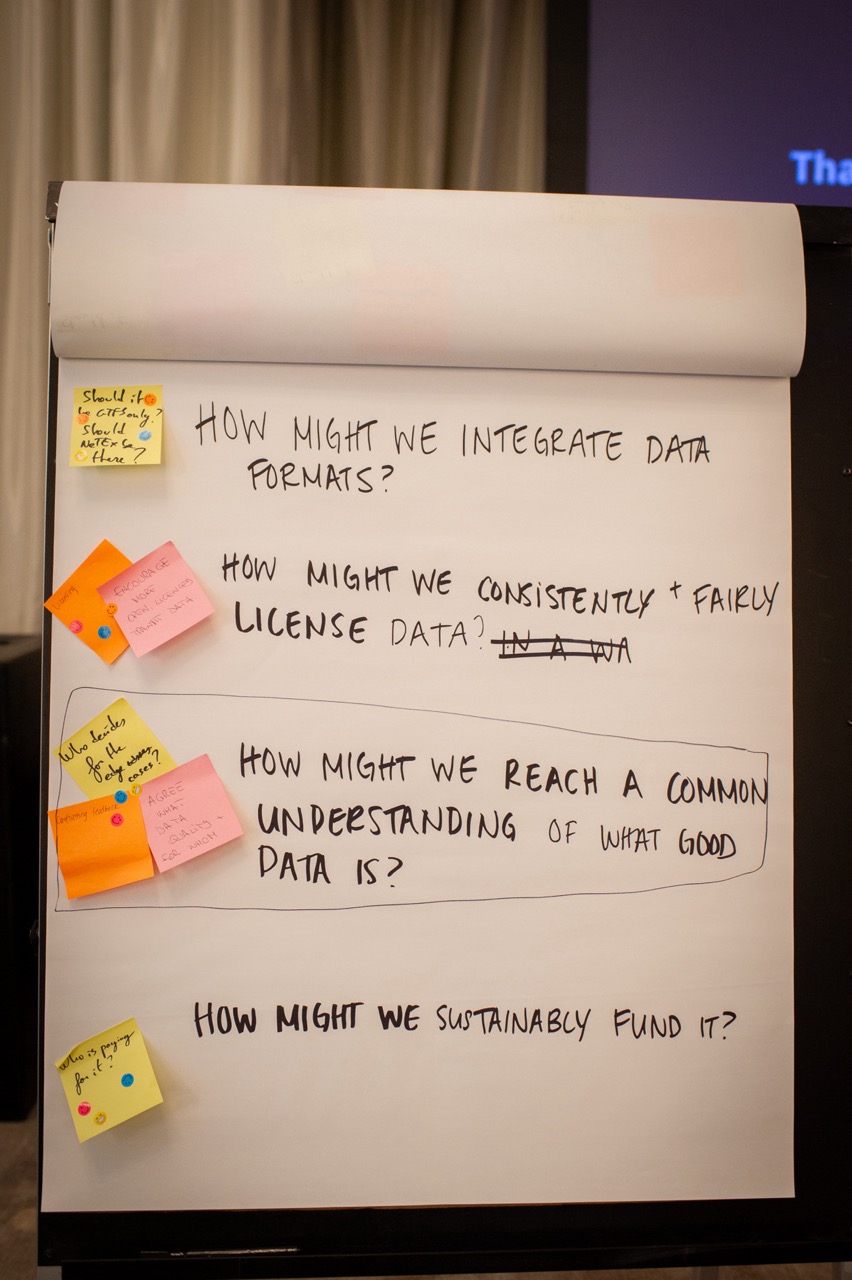 Tha
Should it
be GTFS only?
Should
NeTEx be
there?
HOW MIGHT WE INTEGRATE DATA
FORMATS?
ENCOURAGE
MORE
OPEN LICENCES
TRANSIT DATA
HOW MIGHT WE CONSISTENTLY + FAIRLY
LICENSE DATA? IN A WA
Who decides
for the
edge
cases?
AGREE
WHAT
DATA
QUALITY +
FOR WHOM
HOW MIGHT WE REACH A COMMON
UNDERSTANDING OF WHAT GOOD
DATA IS?
Who is paying
for it?
HOW MIGHT WE SUSTAINABLY FUND IT?